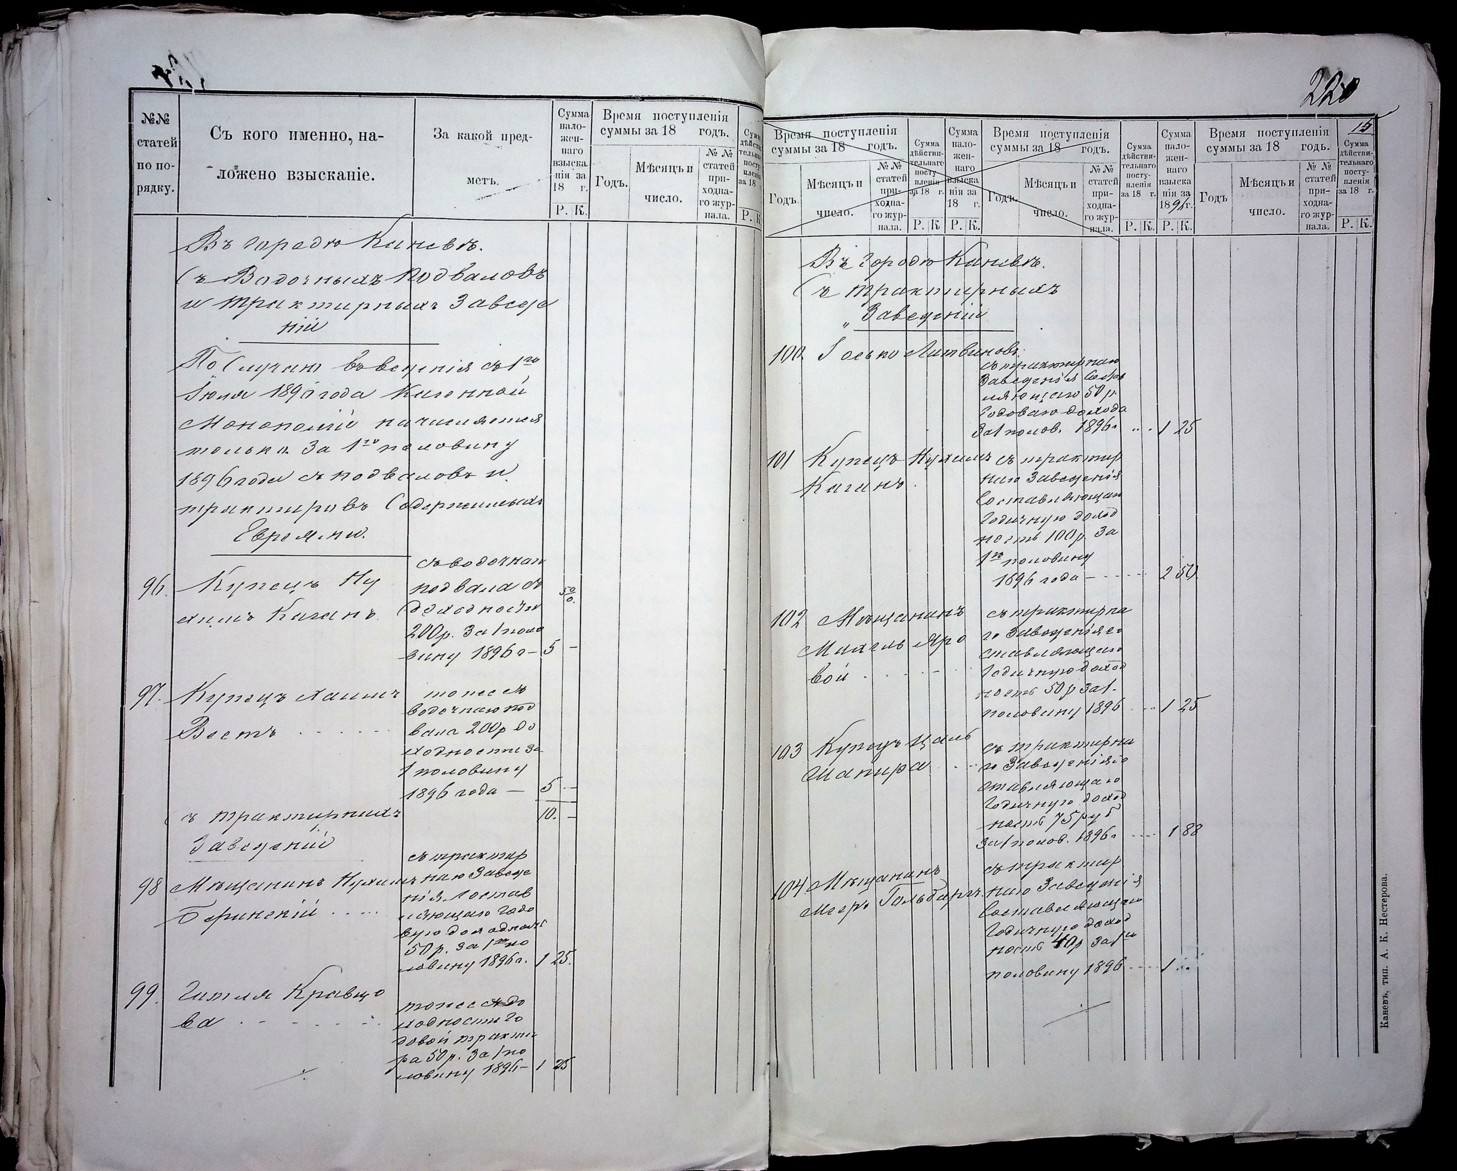 №№ статей по порядку.
Съ кого именно, на-
ложено взысканіе.
За какой пред-
метъ.
Сумма нало- жен- наго взыска нія за 18 г.
Р. К.
Время поступленія
суммы за 18 годъ.
Годъ.
Мѣсяцъ и число.
№ № статей при- ходна- го жур- нала.
Р. К
Въ городѣ Каневѣ.
Съ Водочныхъ подваловъ
и трактирныхъ Заведе
ній
По Случаю введенія съ 1го
Іюля 1896 года Казенной
Монополіи начисляется
только За 1ю половину
1896 года съ подваловъ и
трактировъ Содержимыхъ
Евреями.
96. Купецъ Ну
химъ Каганъ
съ водочнаго
подвала съ
доходностью
200 р. За 1 поло
вину 1896 г – 5 –
97. Купецъ Хаимъ
Вестъ
тоже съ
водочнаго под
вала 200 р до
ходности за
1 половину
1896 года — 5 –
10. –
Съ трактирныхъ
Заведеній
98 Мѣщанинъ Нухимъ
Беринскій
съ трактир
наго Заведе
нія Состав
ляющаго Годо
вую доходность
50 р. За 1ю по
ловину 1896 г. 1 25.
99. Гитля Кравцо
ва
тоже съ до
ходности Го
довой тракти
ра 50 р. За 1 по
ловину 1896 – 1 25
220
15
Время поступленія
суммы за 18 годъ.
Годъ.
Мѣсяцъ и число.
№ № статей при- ходна- го жур- нала.
Сумма дѣйстви- тельнаго посту- пленія за 18 г.
Р. К
Сумма нало- жен- наго взыска нія за 18 г.
Р. К
Время поступленія
суммы за 18 годъ.
Годъ.
Мѣсяцъ и число.
№ № статей при- ходна- го жур- нала.
Сумма дѣйстви- тельнаго посту- пленія за 18 г.
Р. К
Сумма нало- жен- наго взыска нія за 1896 г.
Р. К
Время поступленія
суммы за 18 годъ.
Годъ
Мѣсяцъ и число.
№ № статей при- ходна- го жур- нала.
Сумма дѣйстви- тельнаго посту- пленія за 18 г.
Р. К
Въ Городѣ Каневѣ.
Съ трактирныхъ
Заведеній
100. Іосько Литвиновъ
съ трактирнаго
Заведенія Состав
ляющаго 50 р
Годоваго дохода
За 1 полов. 1896 г. 1 25
101 Купецъ Нухимъ
Каганъ.
съ трактир
наго Заведенія
Составляющаго
Годичную доход
ность 100 р. За
1ю половину
1896 года 2 50.
102 Мѣщанинъ
съ трактирна
го Заведенія со
ставляющаго
Годичную доход
ность 50 р За 1.
половину 1896 1 25
103 Купецъ Цаль
Шапира
съ трактирна
го Заведенія со
ставляющаго
Годичную доход
ность 75 руб
За 1 полов. 1896 г. 1 88
104 Мѣщанинъ
Мееръ Гольдбергъ
съ трактир
наго Заведенія
Составляющаго
Годичную доход
ность 40 р За 1ю
половину 1896 1
Каневъ, тип. А. К. Нестерова.